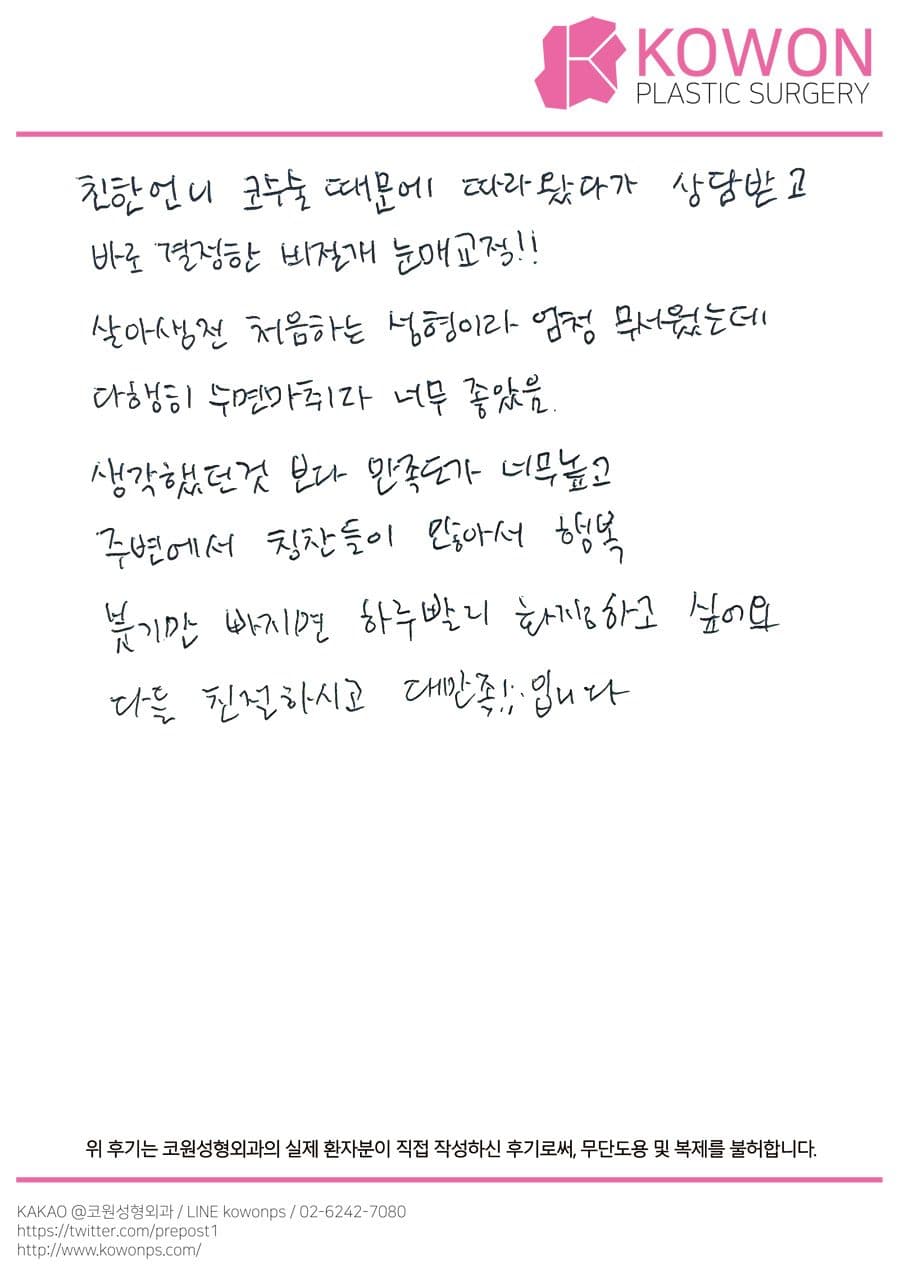 KOWON
PLASTIC SURGERY
친한언니 코수술 때문에 따라왔다가 상담받고
바로 결정한 비절개 눈매교정!!
살아생전 처음하는 성형이라 엄청 무서웠는데
다행히 수면마취라 너무 좋았음.
생각했던것 보다 만족도가 너무높고
주변에서 칭찬들이 많아서 행복
붓기만 빠지면 하루빨리 화장하고 싶어요
다들 친절하시고 대만족!!입니다
위 후기는 코원성형외과의 실제 환자분이 직접 작성하신 후기로써, 무단도용 및 복제를 불허합니다.
KAKAO @코원성형외과 / LINE kowonps / 02-6242-7080
https://twitter.com/prepost1
http://www.kowonps.com/